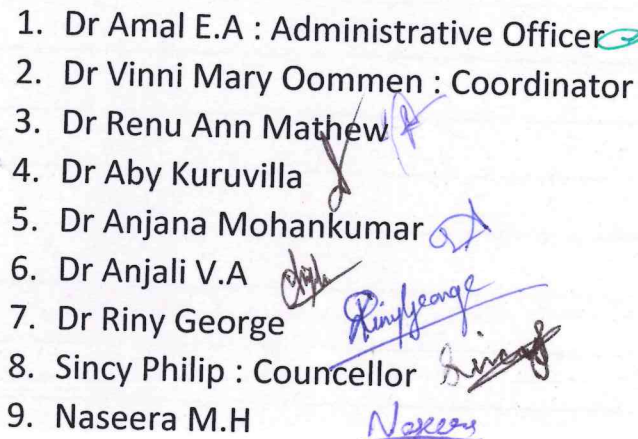 1. Dr Amal E.A : Administrative Officer
2. Dr Vinni Mary Oommen : Coordinator
3. Dr Renu Ann Mathew
4. Dr Aby Kuruvilla
5. Dr Anjana Mohankumar
6. Dr Anjali V.A
7. Dr Riny George RinyGeorge
8. Sincy Philip : Councellor
9. Naseera M.H